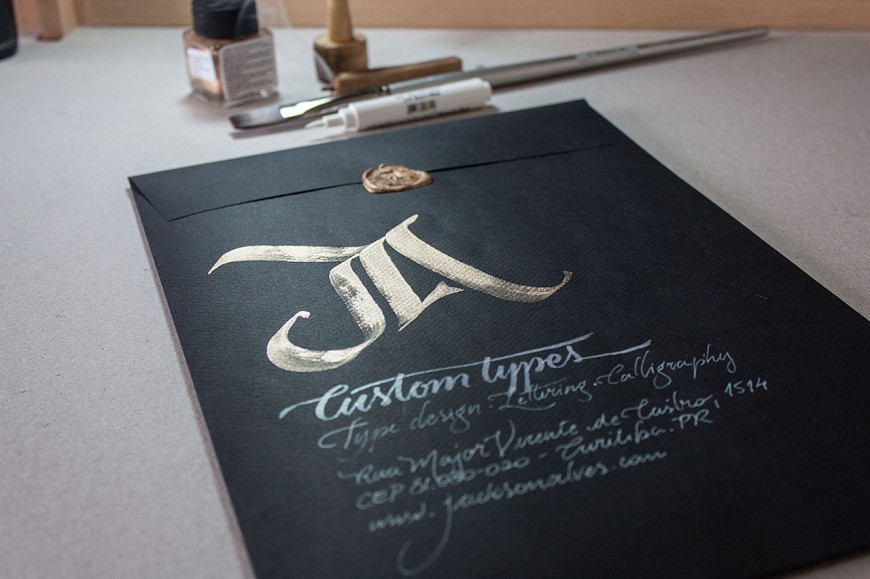 JA
Custom types
Type design · Lettering · Calligraphy
Rua Major Vicente de Castro, 1514
CEP 81.030-020 - Curitiba. PR
www.jacksonalves.com